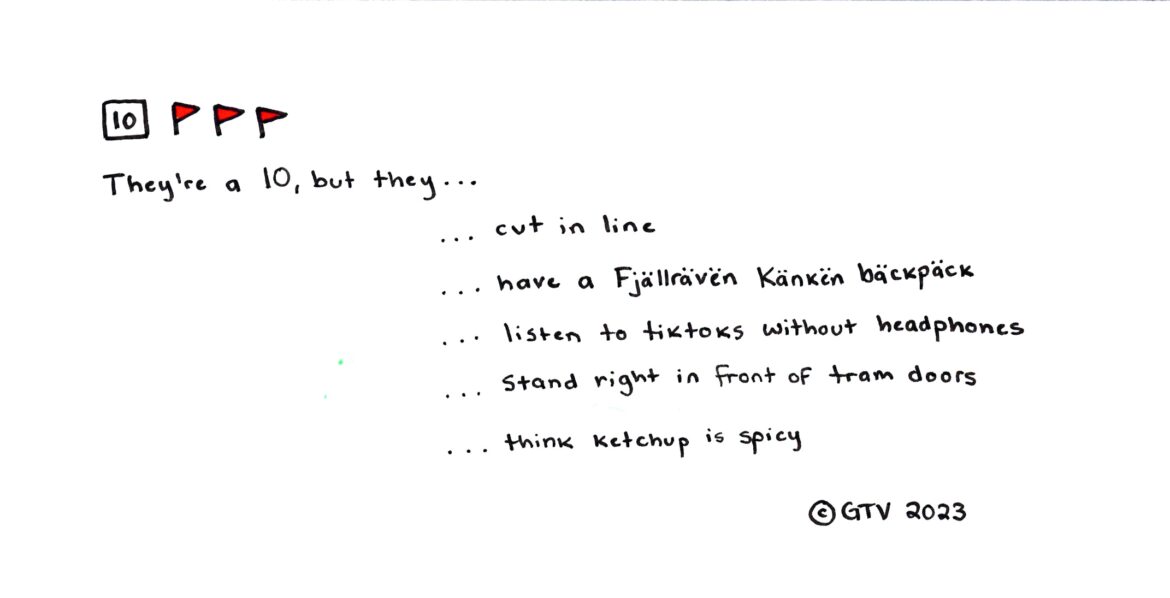 10
They're a 10, but they...
... cut in line
... have a Fjällrävën Känkën bäckpäck
... listen to tiktoks without headphones
... stand right in front of tram doors
... think ketchup is spicy
© GTV 2023